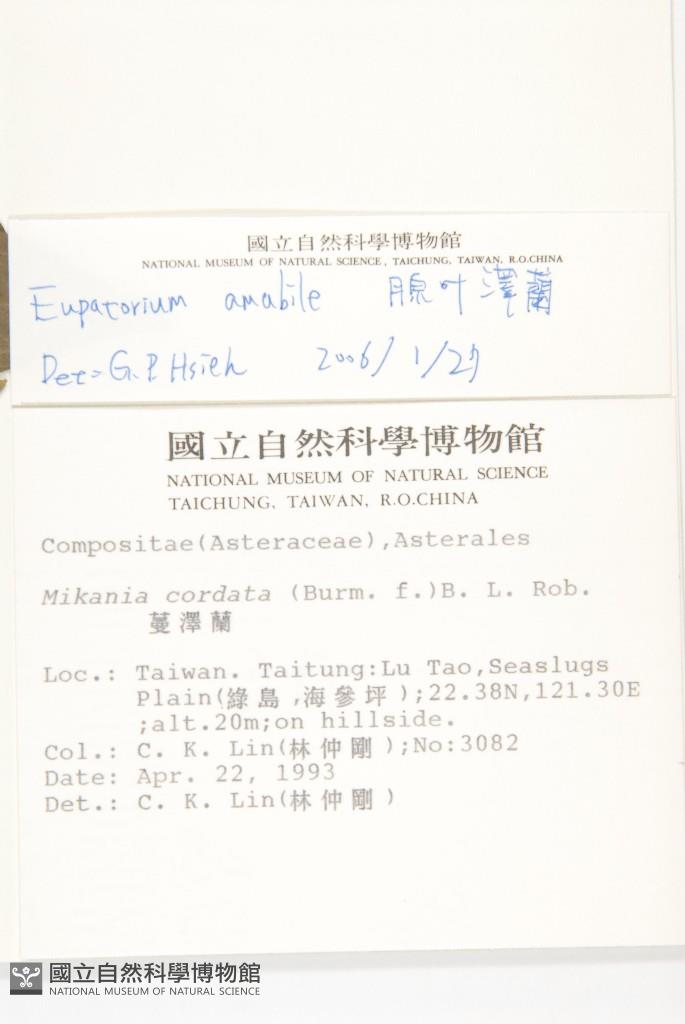 國立自然科學博物館
NATIONAL MUSEUM OF NATURAL SCIENCE, TAICHUNG, TAIWAN, R.O.CHINA
Eupatorium amabile 腺叶澤蘭
Det= G.P. Hsieh 2006/1/27
國立自然科學博物館
NATIONAL MUSEUM OF NATURAL SCIENCE
TAICHUNG, TAIWAN, R.O.CHINA
Compositae(Asteraceae),Asterales
Mikania cordata (Burm. f.)B. L. Rob.
蔓澤蘭
Loc.: Taiwan. Taitung:Lu Tao,Seaslugs
Plain(綠島,海參坪);22.38N,121.30E
;alt.20m;on hillside.
Col.: C. K. Lin(林仲剛);No:3082
Date: Apr. 22, 1993
Det.: C. K. Lin(林仲剛)
國立自然科學博物館
NATIONAL MUSEUM OF NATURAL SCIENCE